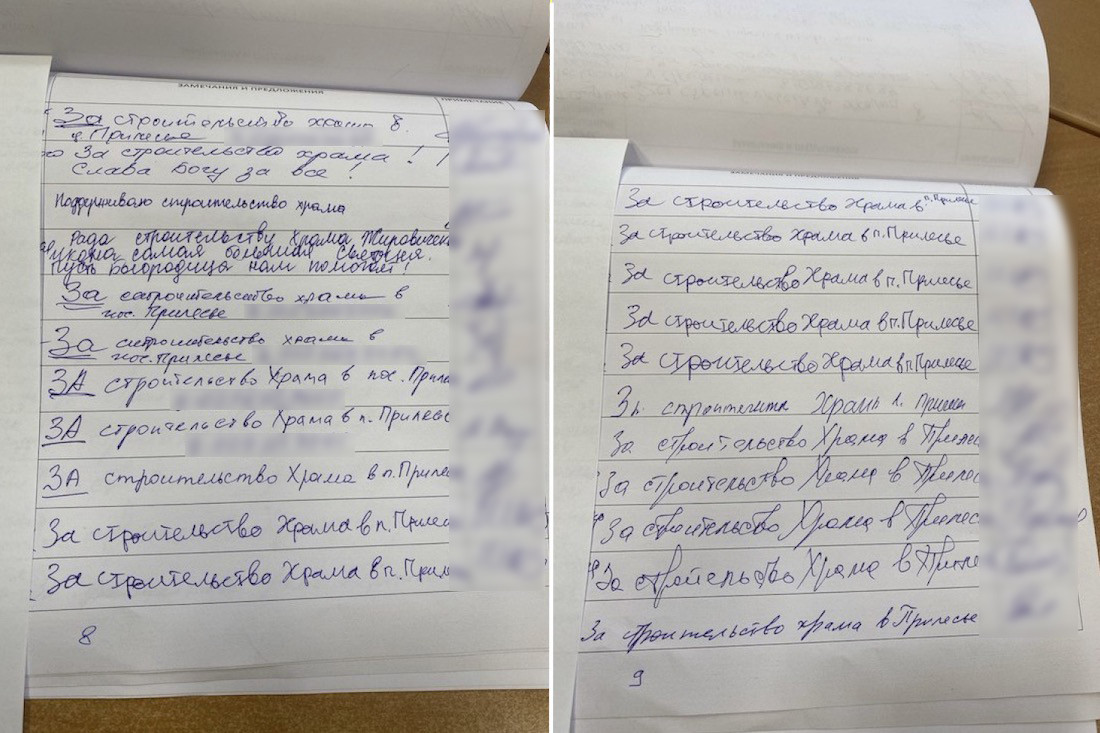 ЗАМЕЧАНИЯ И ПРЕДЛОЖЕНИЯ
За строительство храма в
п. Прилесье
За строительство храма!
Слава Богу за все!
Поддерживаю строительство храма
Рада строительству Храма. Жировичская
икона самая большая святыня.
Пусть Богородица нам помогает!
За строительство храма в
пос. Прилесье
За строительство храма в
пос. Прилесье
ЗА строительство Храма в пос. Приле
ЗА строительство Храма в п. Прилесь
ЗА строительство Храма в п. Прилес
За строительство Храма в п. Прилес
За строительство Храма в п. Прил
8
ЗАМЕЧАНИЯ И ПРЕДЛОЖЕНИЯ
За строительство Храма в п. Прилесье
За строительство Храма в п. Прилесье
За строительство Храма в п. Прилесье
За строительство Храма в п. Прилесье
За строительство Храма в п. Прилесье
За строительства Храма
За строительство Храма в Прилес
За строительство Храма в Прилес
За строительство Храма в Прилес
За строительство Храма в Приле
За строительство храма в Прилесье
9